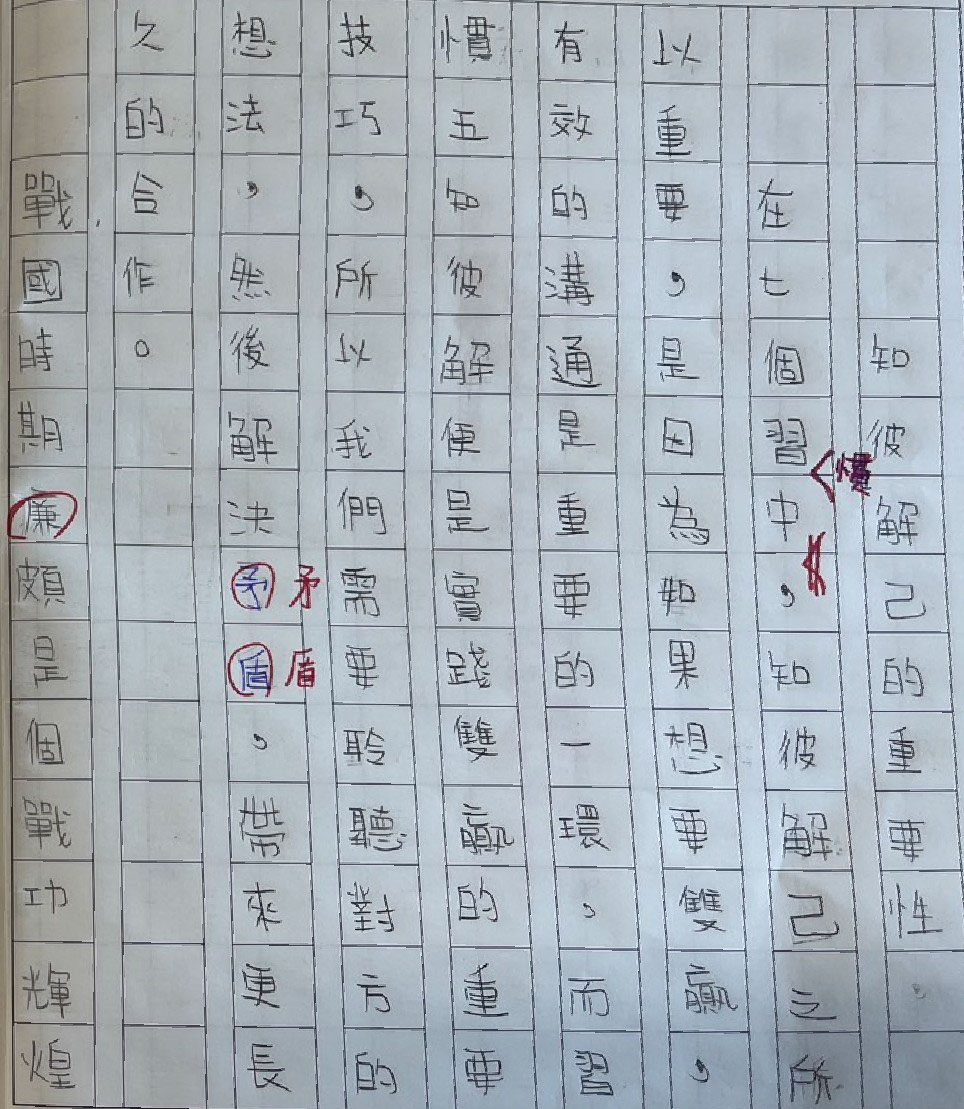 知彼解己的重要性
在七個習中，知彼解己之所
慣
以重要，是因為知果想要雙贏，
有效的溝通是重要的一環，而習
慣五知彼解便是實踐雙贏的重要
技巧，所以我們需要聆聽對方的
想法，然後解決予盾，帶來更長
矛盾
久的合作。
戰國時期廉頗是個戰功輝煌